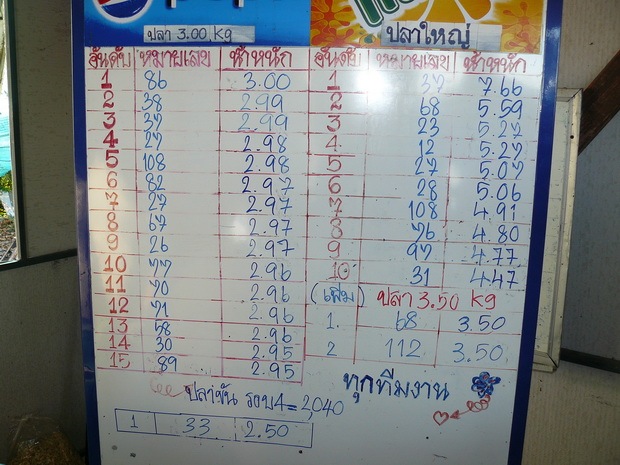 ปลา 3.00 kg
อันดับ หมายเลข น้ำหนัก
1 86 3.00
2 38 2.99
3 37 2.99
4 27 2.98
5 108 2.98
6 82 2.97
7 27 2.97
8 67 2.97
9 26 2.97
10 77 2.96
11 70 2.96
12 71 2.96
13 58 2.96
14 30 2.95
15 89 2.95
ปลาใหญ่
อันดับ หมายเลข น้ำหนัก
1 37 7.66
2 68 5.59
3 23 5.27
4 12 5.27
5 27 5.07
6 28 5.06
7 108 4.91
8 76 4.80
9 97 4.77
10 31 4.47
(เสริม) ปลา 3.50 kg
1. 68 3.50
2 112 3.50
ทุกทีมงาน
รอบ4 = 2040
1 33 2.50